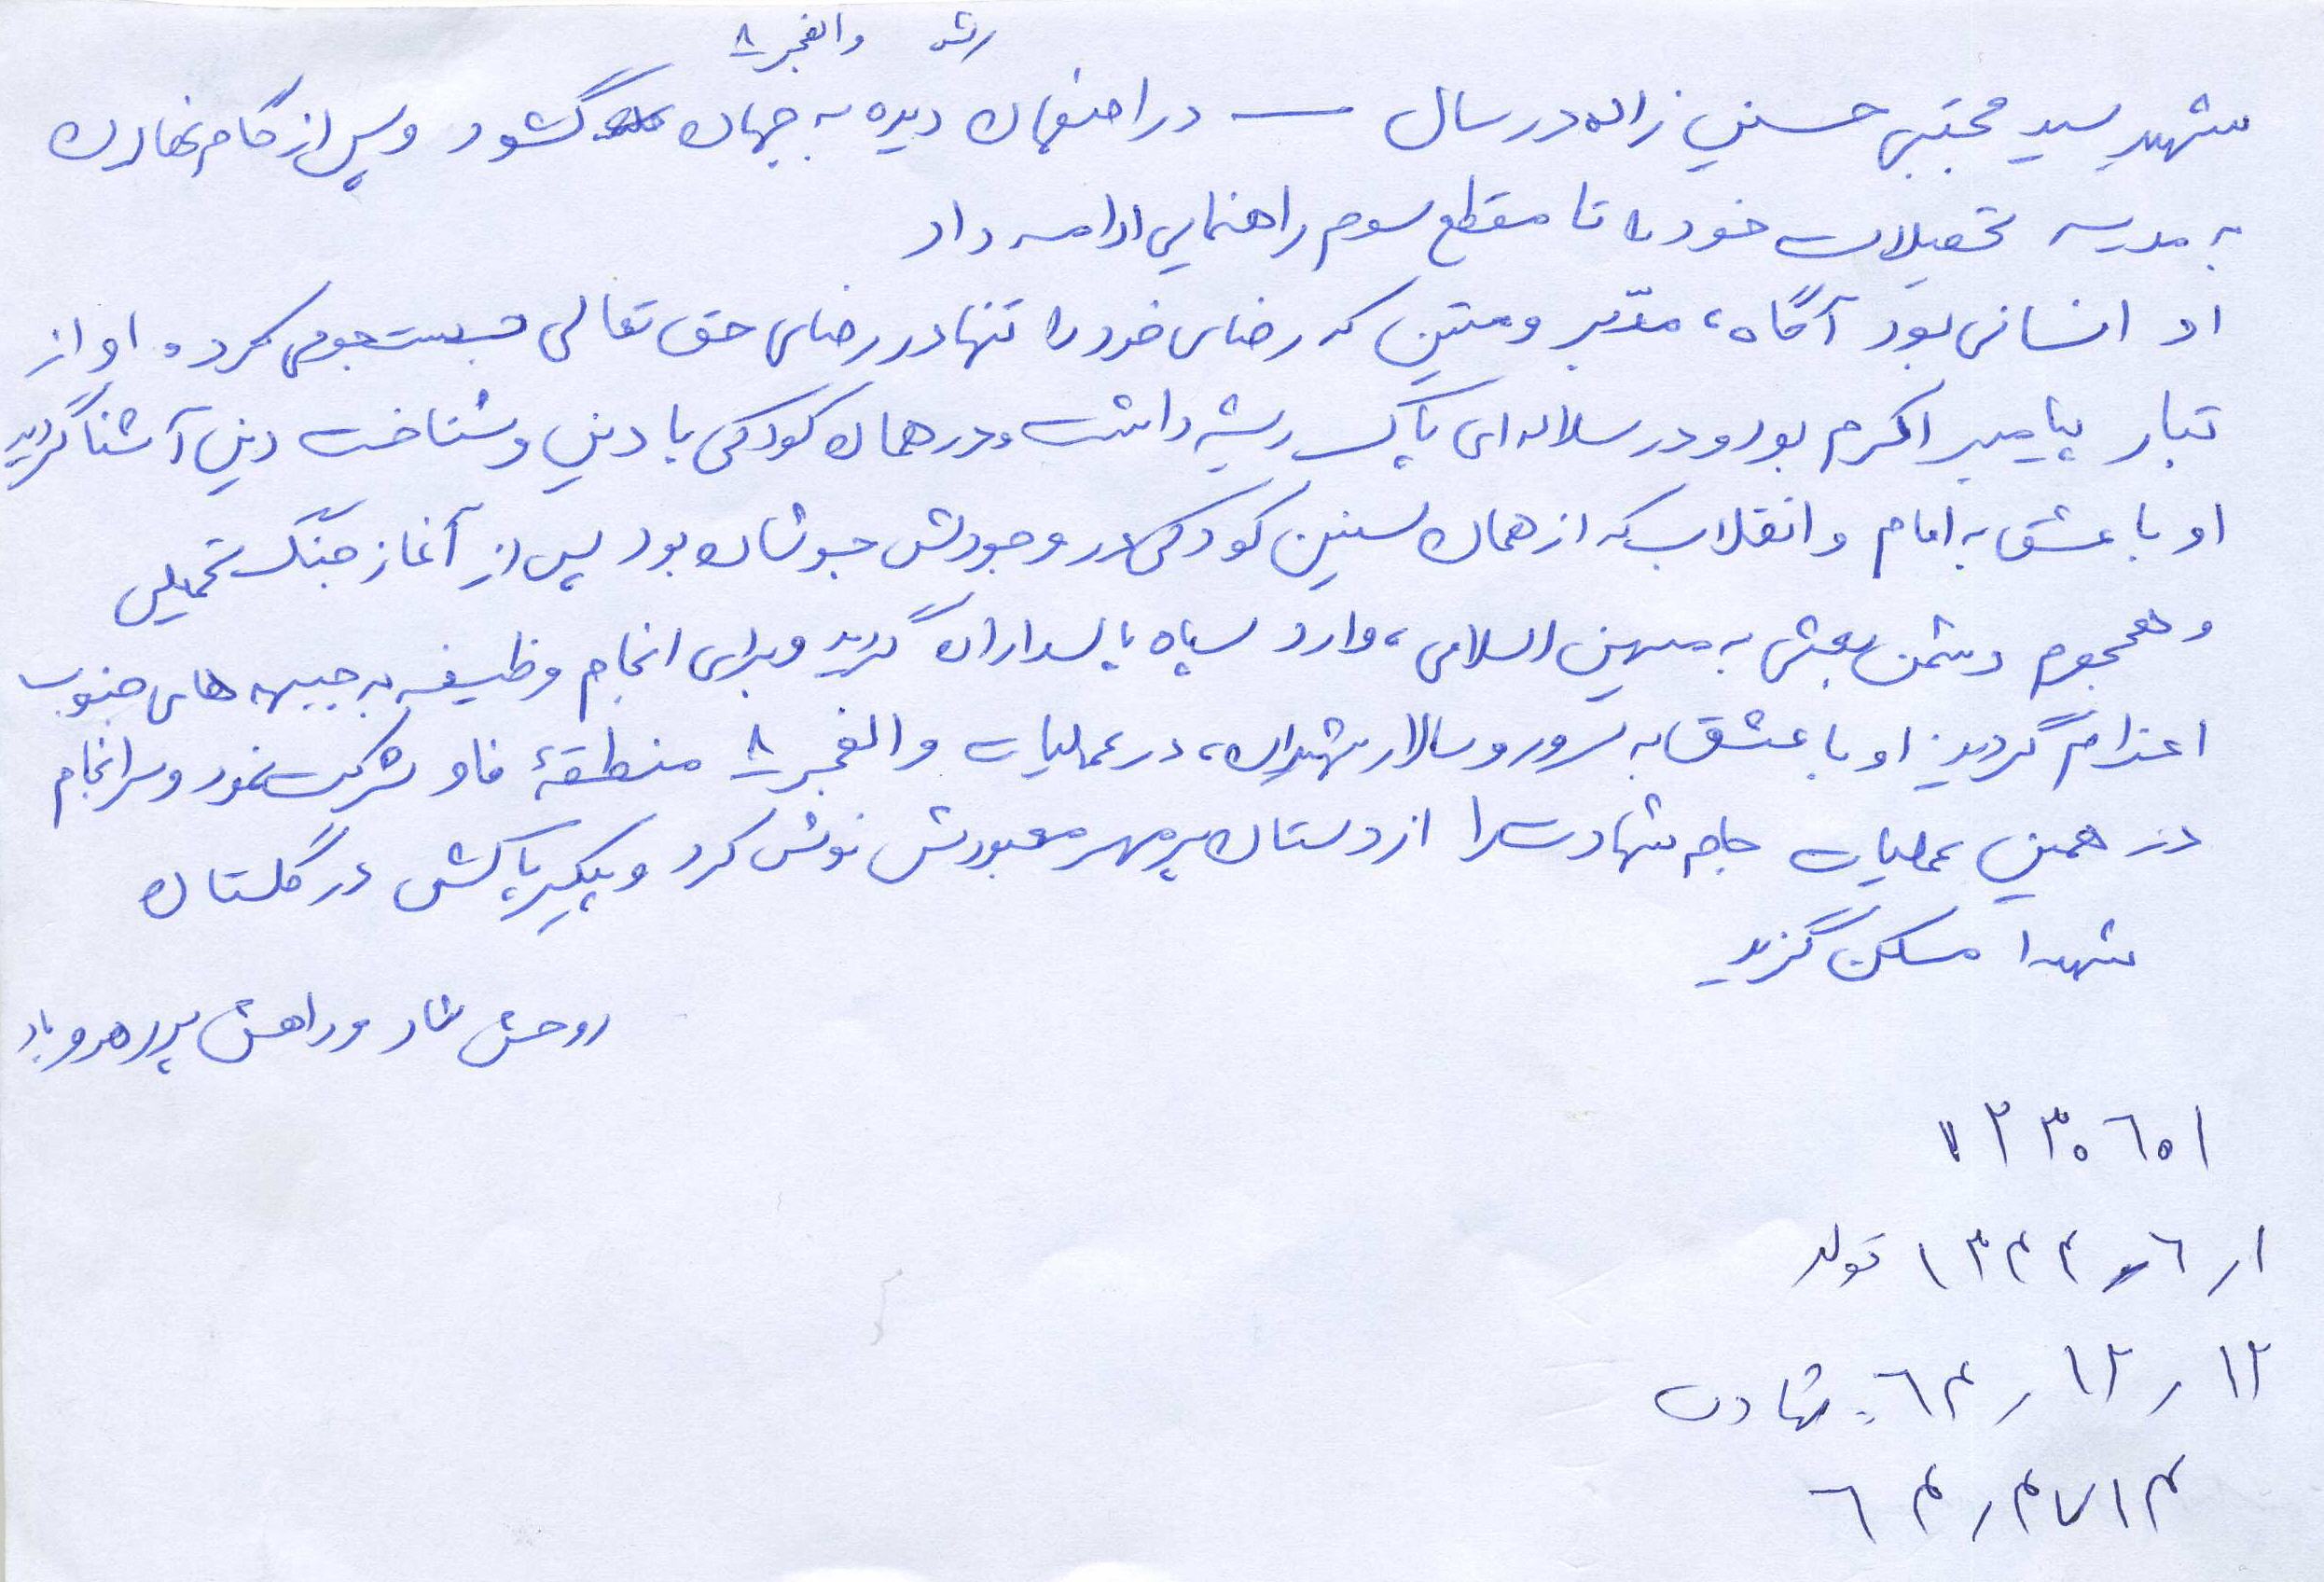 والفجر ۸
شهید سید مجتبی حسینی زاده در سال — در اصفهان دیده به جهان گشود و پس از گام نهادن
به مدرسه تحصیلات خود را تا مقطع سوم راهنمایی ادامه داد
او انسانی بود آگاه، مدّبر و متین که رضای خود را تنها در رضای حق تعالی جستجو می کرد. او از
تبار پیامبر اکرم بود و در سلاله ای پاک ریشه داشت و در همان کودکی با دین و شناخت دین آشنا گردید
او با عشق به امام و انقلاب که از همان سنین کودکی در وجودش جوشان بود پس از آغاز جنگ تحمیلی
و هجوم دشمن بعثی به میهن اسلامی، وارد سپاه پاسداران گردید و برای انجام وظیفه به جبهه های جنوب
اعزام گردید. او با عشق به سرور و سالار شهیدان، در عملیات والفجر ۸ منطقهٔ فاو شرکت نمود و سرانجام
در همین عملیات جام شهادت را از دستان پر مهر معبودش نوش کرد و پیکر پاکش در گلستان
شهدا مسکن گزید
روحش شاد و راهش پر رهرو باد
۷۲۳۰۶۵۱
۱ر۶ر۱۳۴۴ تولد
۱۲ر۱۲ر۶۴ شهادت